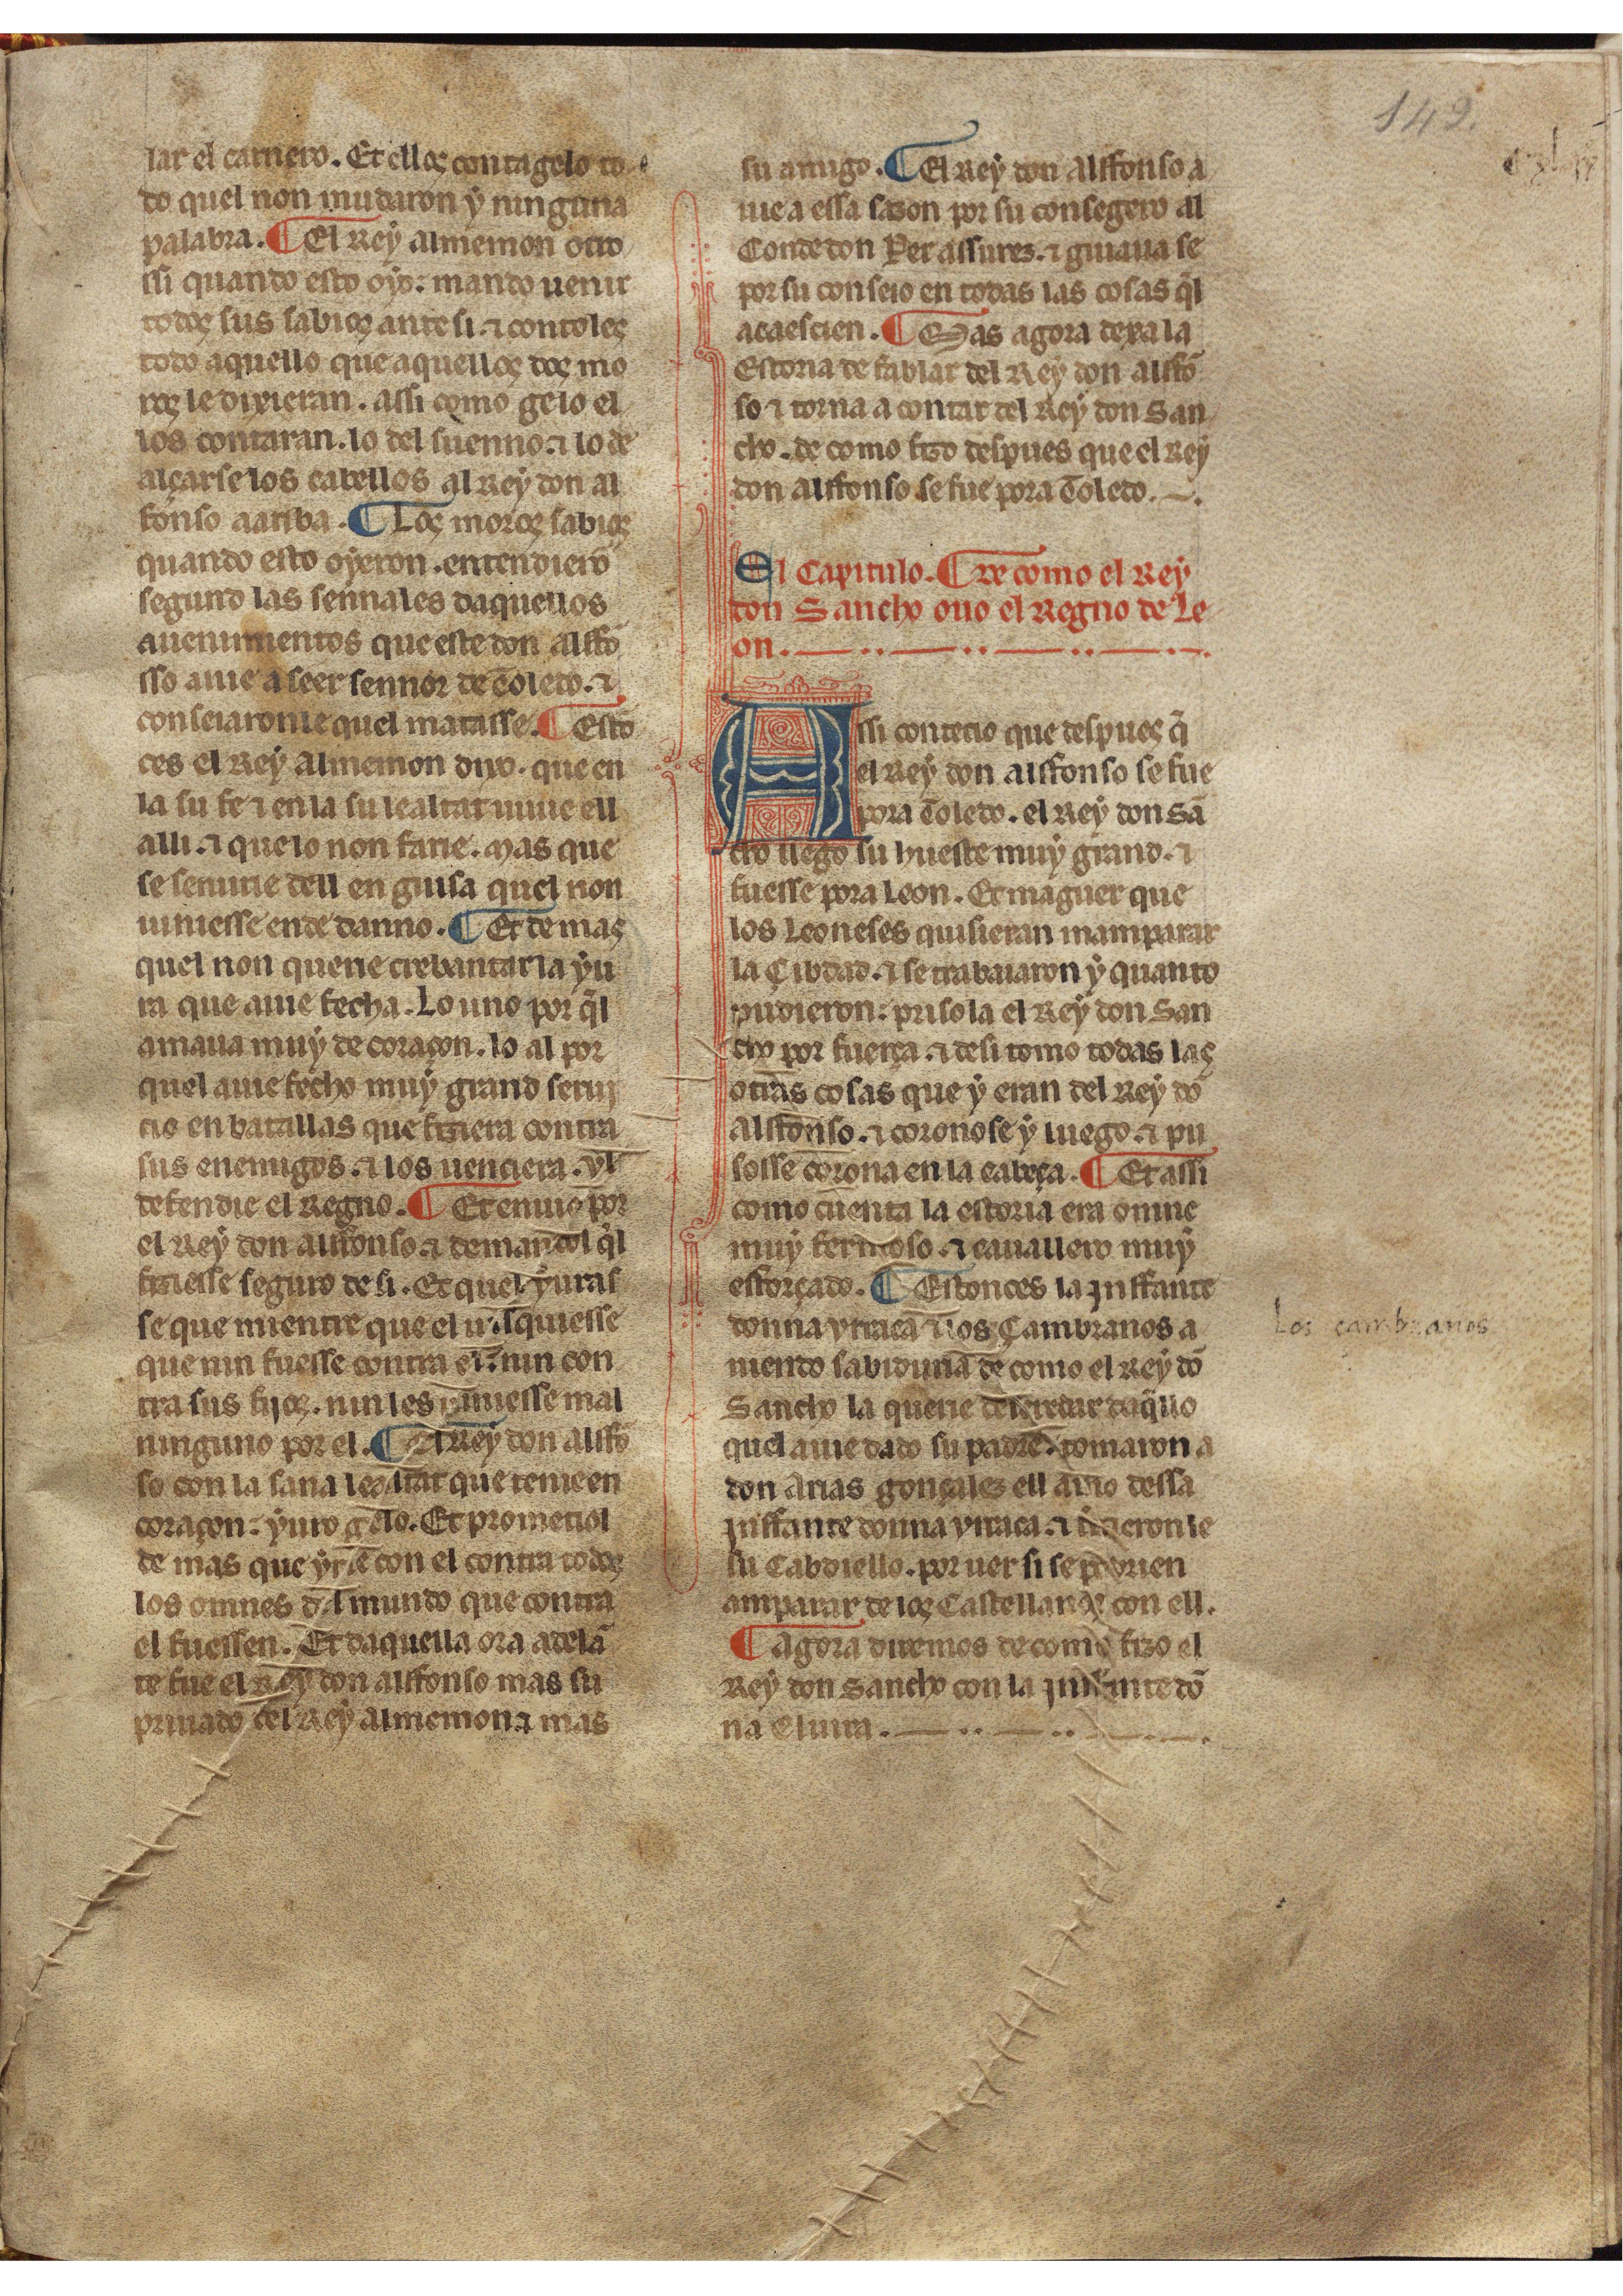 142.
lar el carnero. Et ellos contagelo to
do quel non mudaron ẏ ninguna
palabra. ¶ El Reẏ almemon otro
ssi quando esto oẏo: mando uenir
todos sus sabios ante si. ⁊ contoles
todo aquello que aquellos dos mo
ros le dixieran. assi como gelo el
los contaran. lo del suenno. ⁊ lo de
alçarse los cabellos al Reẏ don al
fonso aarriba. ¶ Los moros sabios
quando esto oẏeron. entendierõ
segund las sennales daquellos
auenimientos que este don alffõ
sso auie a seer sennor de Toledo. ⁊
conseiaronle quel matasse. ¶ Estõ
ces el Reẏ almemon dixo. que en
la su fe ⁊ en la su lealtat uiuie ell
alli. ⁊ que lo non farie. mas que
se seruirie dell en guisa quel non
uiniesse ende danno. ¶ Et demas
quel non querie crebantar la ẏu
ra que auie fecha. Lo uno por q̃l
amaua muẏ de coraçon. lo al por
quel auie fecho muẏ grand serui
cio en batallas que fiziera contra
sus enemigos. ⁊ los uenciera. ẏl
defendie el Regno. ¶ Et enuio por
el Reẏ don alffonso. ⁊ demandol q̃l
fiziesse seguro de si. Et quel ẏuras
se que mientre que el uisquiesse
que nin fuesse contra el: nin con
tra sus fijos. nin les uiniesse mal
ninguno por el. ¶ El Reẏ don alffõ
so con la sana lealtat que tenie en
coraçon: ẏuro gelo. Et prometiol
de mas que ẏrie con el contra todos
los omnes del mundo que contra
el fuessen. Et daquella ora adelã
te fue el Reẏ don alffonso mas su
priuado del Reẏ almemon ⁊ mas
su amigo. ¶ El Reẏ don alffonso a
uie a essa sazon por su consegero al
Conde don Per assurez. ⁊ guiaua se
por su conseio en todas las cosas q̃l
acaescien. ¶ Mas agora dexa la
Estoria de fablar del Reẏ don alffõ
so ⁊ torna a contar del Reẏ don San
cho. de como fizo despues que el Reẏ
don alffonso se fue pora Toledo.
El Capitulo. ¶ De como el Reẏ
don Sancho ouo el Regno de Le
on.
Assi contecio que despues q̃
el Reẏ don alffonso se fue
pora Toledo. el Reẏ don Sã
cho llego su hueste muẏ grand. ⁊
fuesse pora Leon. Et maguer que
los Leoneses quisieran mamparar
la Çibdad. ⁊ se trabaiaron ẏ quanto
pudieron: prisola el Reẏ don San
cho por fuerça. ⁊ desi tomo todas las
otras cosas que ẏ eran del Reẏ dõ
Alffonso. ⁊ coronose ẏ luego. ⁊ pu
sosse corona en la cabeça. ¶ Et assi
como cuenta la estoria era omne
muẏ fermoso. ⁊ cauallero muẏ
efforçado. ¶ Estonces la Jnffante
donna vrraca ⁊ los Çambranos a
uiendo sabiduria de como el Reẏ dõ
Sancho la querie deseredar daq̃llo
quel auie dado su padre. tomaron a
don Arias gonçalez ell amo dessa
Jnffante donna vrraca. ⁊ fizieronle
su Cabdiello. por uer si se podrien
amparar de los Castellanos con ell.
¶ Agora diremos de como fizo el
Reẏ don Sancho con la Jnffante dõ
na Eluira.
Los çambranos